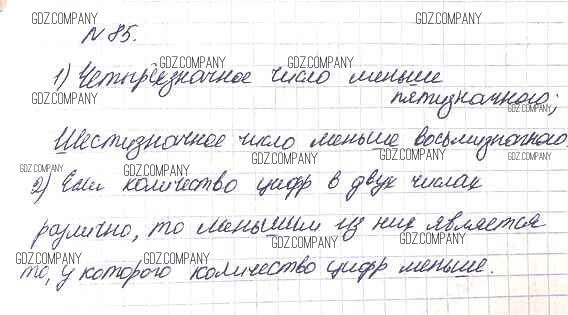 GDZ.COMPANY GDZ.COMPANY
N 85.
GDZ.COMPANY GDZ.COMPANY
1) Четырёхзначное число меньше
GDZ.COMPANY пятизначного; GDZ.COMPANY
Шестизначное число меньше восьмизначного.
GDZ.COMPANY GDZ.COMPANY GDZ.COMPANY GDZ.COMPANY GDZ.COMPANY
2) Если количество цифр в двух числах
различно, то меньшим из них является
GDZ.COMPANY GDZ.COMPANY GDZ.COMPANY GDZ.COMPANY
то, у которого количество цифр меньше.